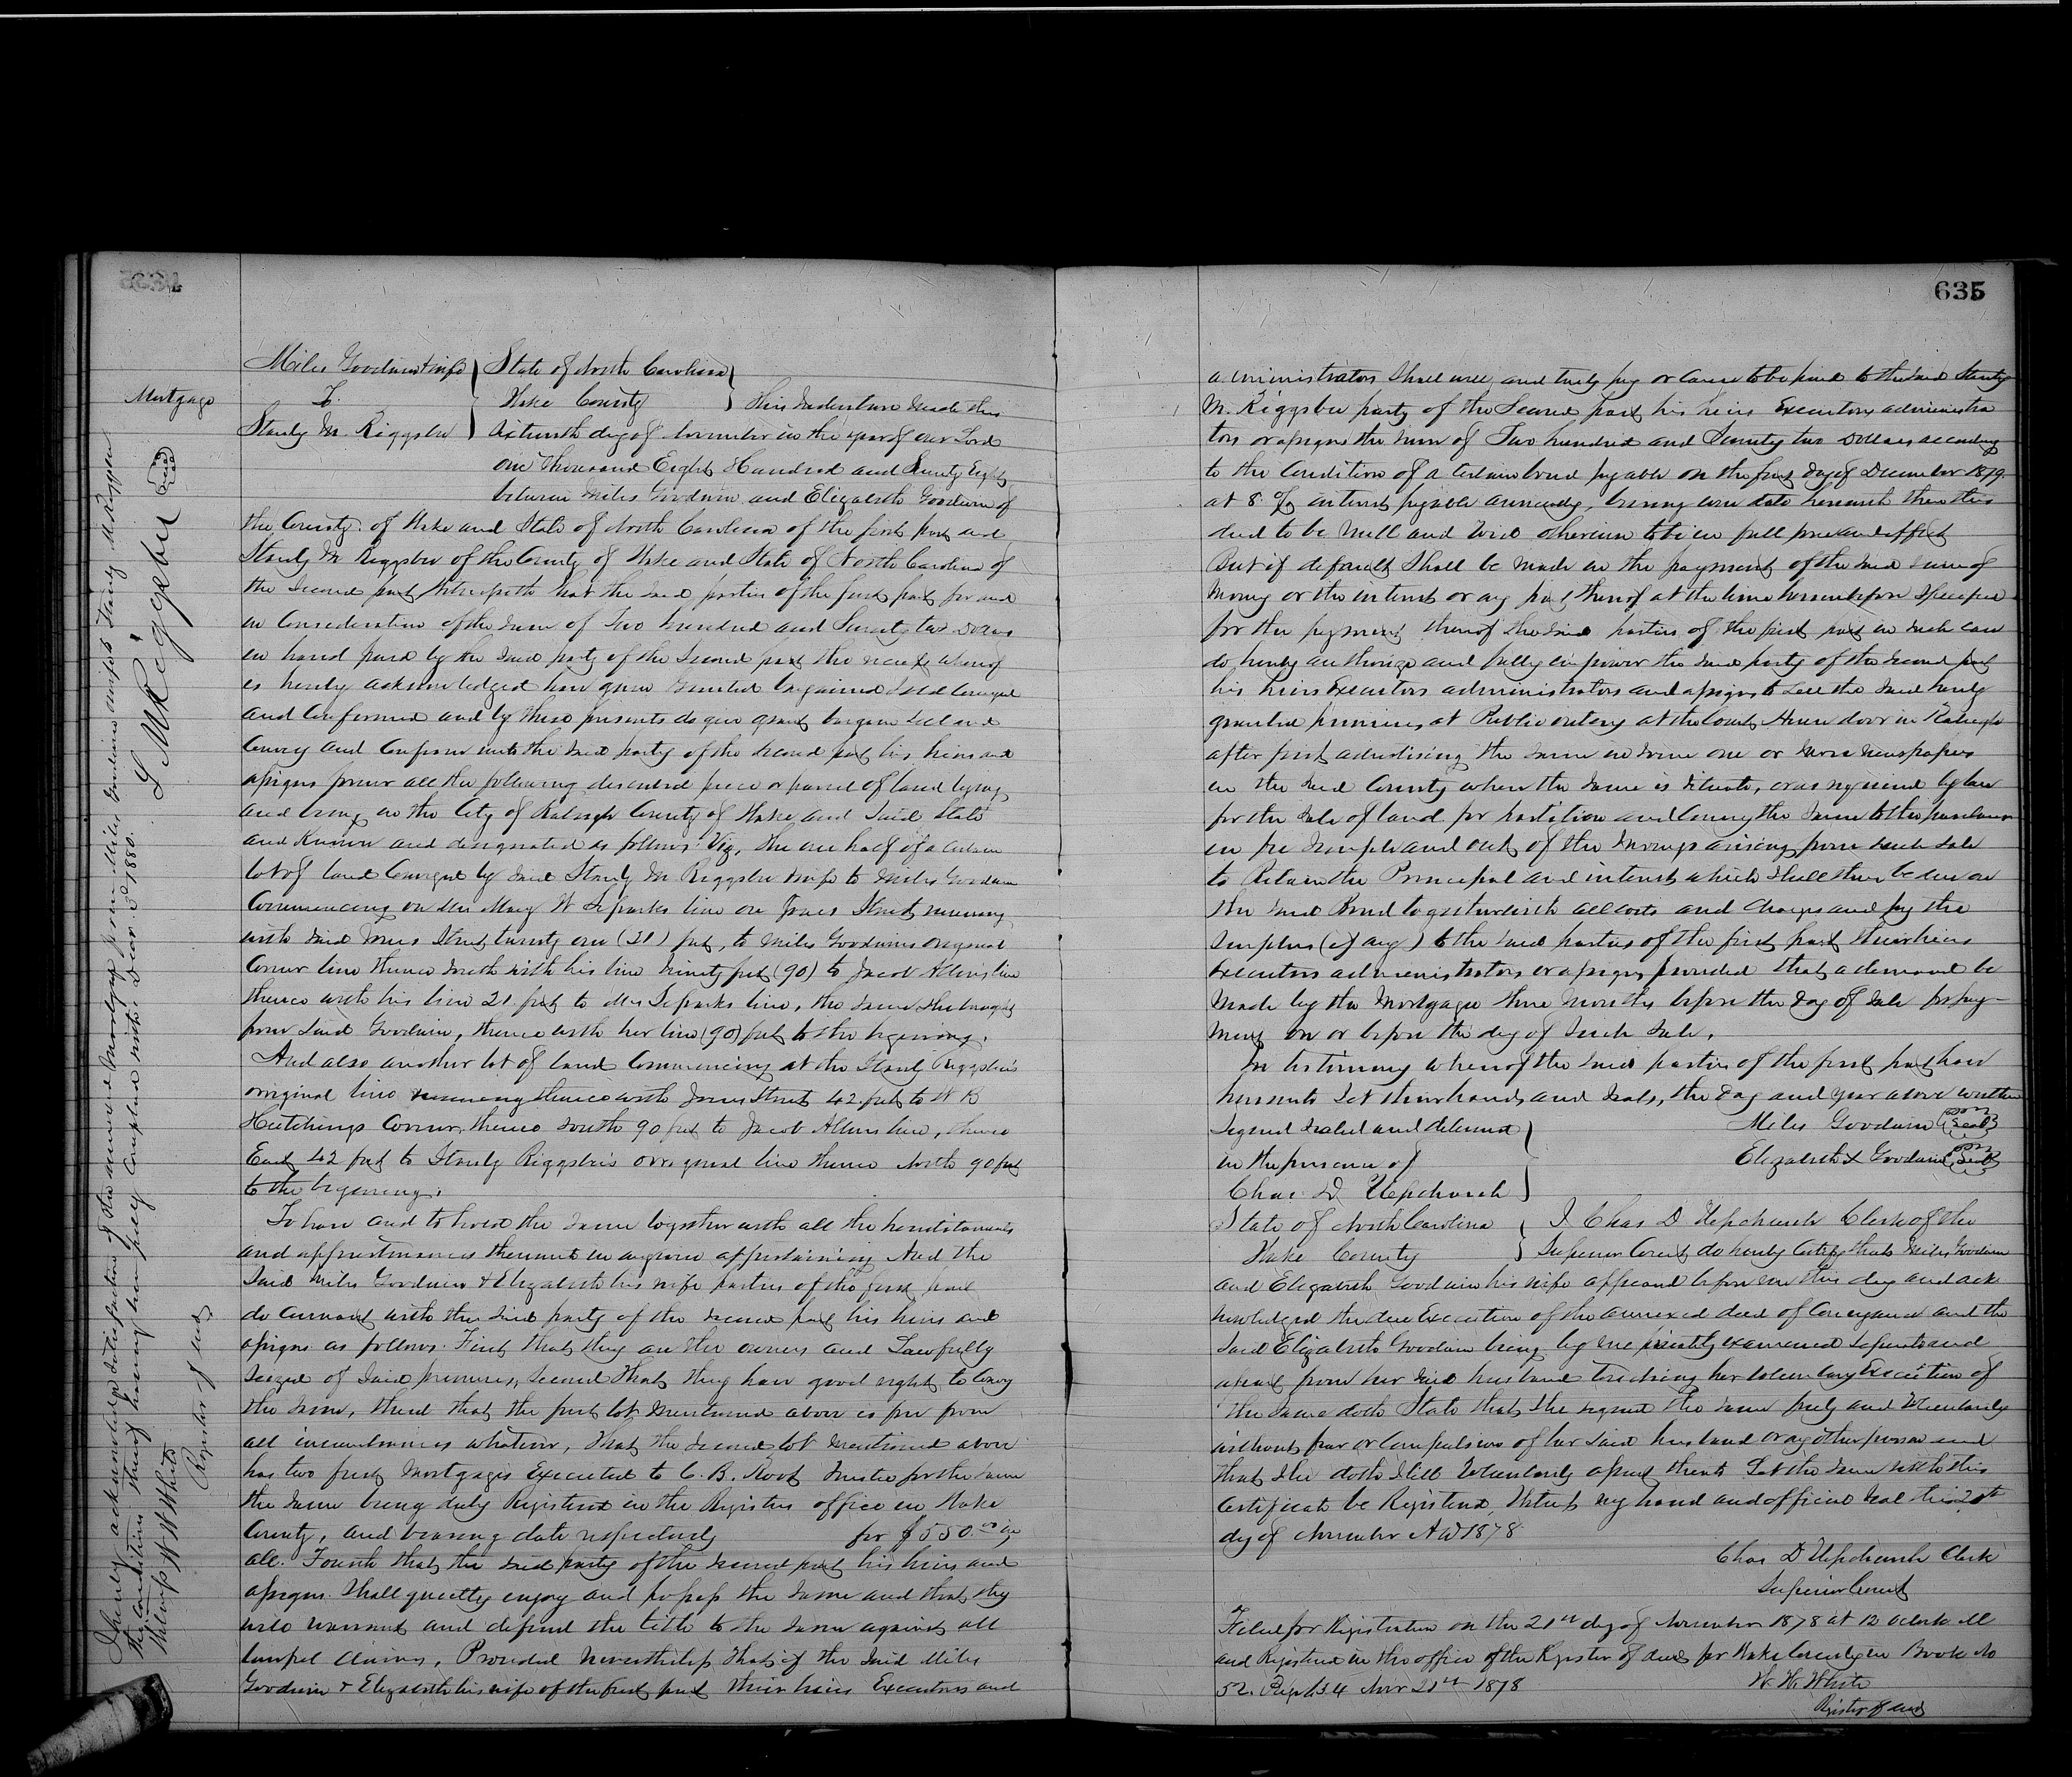 Mortgage
Miles Goodwin & wife } State of North Carolina }
To } Wake County } This Indenture made this
Stanly M. Riggsbee } Sixteenth day of November in the year of our Lord
one Thousand Eight Hundred and Seventy Eight
between Miles Goodwin and Elizabeth Goodwin of
the County of Wake and State of North Carolina of the first part and
Stanly M Riggsbee of the County of Wake and State of North Carolina of
the Second part, Witnesseth that the said parties of the first part for and
in Consideration of the sum of Two hundred and Seventy two Dollars
in hand paid by the said party of the Second part the receipt whereof
is hereby acknowledged have given Granted bargained Sold Conveyed
and Confirmed and by these presents do give grant bargain Sell and
Convey and Confirm unto the said party of the Second part his heirs and
assigns forever all the following described piece or parcel of land lying
and being in the City of Raleigh County of Wake and Said State
and Known and designated as follows Viz, The one half of a certain
lot of land Conveyed by Said Stanly M Riggsbee & wife to Miles Goodwin
Commencing on Mrs Mary W Separks line on Jones Street running
with Said Jones Street twenty one (21) feet, to Miles Goodwins original
Corner line thence South with his line Ninety feet (90) to Jacob Allens line
thence with his line 21 feet to Mrs Separks line, the same She bought
from Said Goodwin, thence with her line (90) feet to the begining.
And also another lot of land Commencing at the Stanly Riggsbee's
original line running thence with Jones Street 42 feet to W B
Hutchings Corner, thence South 90 feet to Jacob Allens line, thence
East 42 feet to Stanly Riggsbee's original line thence North 90 feet
to the begining.
To have and to hold the same together with all the hereditaments
and appurtenances thereunto in anywise appertaining And the
Said Miles Goodwin & Elizabeth his wife parties of the first part
do Covenant with the Said party of the Second part his heirs and
assigns as follows. First that they are the owners and Lawfully
Seized of Said premises, Second That they have good right to Convey
the Same, third that the first lot Mentioned above is free from
all incumbrances whatever, that the Second lot Mentioned above
has two first Mortgages Executed to C. B. Root Trustee for the same
the Same being duly Registered in the Registers office in Wake
County, and bearing date respectively for $550.00 in
all. Fourth that the Said party of the Second part his heirs and
assigns Shall quietly enjoy and possess the Same and that they
will warrant and defend the title to the Same against all
lawful claims, Provided Nevertheless That if the Said Miles
Goodwin & Elizabeth his wife of the first part their heirs Executors and
I hereby acknowledge satisfaction of the annexed Mortgage from Miles Goodwin & wife to Stanly M Riggsbee
the Conditions thereof having been fully Complied with Decr 1880.
S M Riggsbee Seal
Witness W W White
Register of deeds
635
administrators Shall well and truly pay or Cause to be paid to the Said Stanly
M. Riggsbee party of the Second part his heirs Executors administra
tors or assigns the sum of Two hundred and Seventy two Dollars according
to the Condition of a Certain bond payable on the first day of December 1879.
at 8 % interest payable annually, bearing even date herewith then this
deed to be Null and Void otherwise to be in full force and effect
But if default Shall be made in the payment of the Said Sum of
Money or the interest or any part thereof at the time hereinbefore Specified
for the payment thereof the Said parties of the first part in Such case
do hereby authorize and fully empower the Said party of the Second part
his heirs Executors administrators and assigns to Sell the Said hereby
granted premises, at Public outcry at the Court House door in Raleigh
after first advertising the Same in Some one or more newspapers
in the Said County where the Same is Situate, or as required by law
for the Sale of land for partition and Convey the Same to the purchaser
in fee Simple and out of the Moneys arising from Such Sale
to Retain the Principal and interest which Shall then be due on
the Said Bond together with all costs and Charges and pay the
Surplus (if any) to the Said parties of the first part their heirs
Executors administrators or assigns provided that a demand be
Made by the Mortgagee three months before the day of Sale for pay-
ment on or before the day of Such Sale.
In testimony whereof the Said parties of the first part have
hereunto Set their hands and Seals, the day and year above written
Signed Sealed and delivered } Miles Goodwin Seal
in the presence of } Elizabeth X Goodwin Seal
Chas. D Upchurch }
State of North Carolina } I Chas D Upchurch Clerk of the
Wake County } Superior Court do hereby Certify that Miles Goodwin
and Elizabeth Goodwin his wife appeared before me this day and ack
nowledged the due Execution of the annexed deed of Conveyance and the
Said Elizabeth Goodwin being by me privately examined Separate and
apart from her Said husband touching her Voluntary Execution of
the Same doth State that She signed the Same freely and Voluntarily
without fear or Compulsion of her Said husband or any other person and
that She doth Still Voluntarily assent thereto Let the Same with this
Certificate be Registered, Witness my hand and official Seal this 20th
day of November A D 1878.
Chas D Upchurch Clerk
Superior Court
Filed for Registration on the 21st day of November 1878 at 12 oclock M
and Registered in the office of the Register of deeds for Wake County in Book No
52. Page 634 Nov 21st 1878
W. W. White
Register of deeds